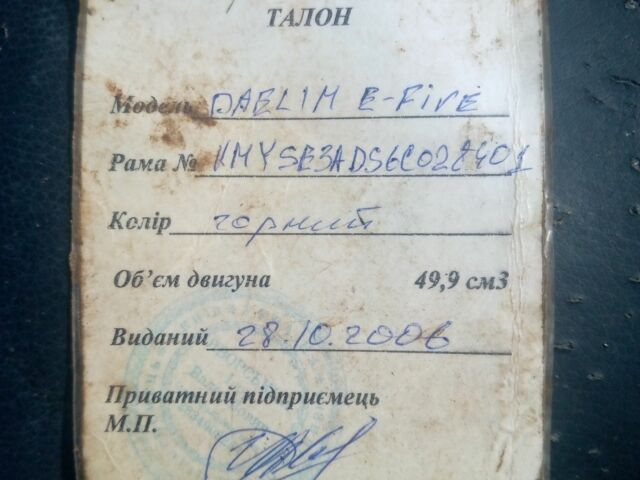 ТАЛОН
Модель DAELIM E-Five
Рама № KMYSE3ADS6C028401
Колір чорний
Об'єм двигуна 49,9 см3
Виданий 28.10.2006
Приватний підприємець
М.П.